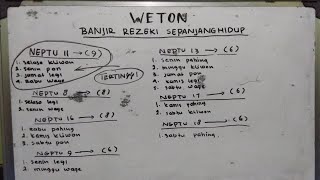 WETON
BANJIR REZEKI SEPANJANG HIDUP
NEPTU 11 → (9)
1. selasa kliwon
2. senin pon
3. jumat legi
4. rabu wage
TERTINGGI
NEPTU 8 → (8)
1. selasa legi
2. senin wage
NEPTU 16 → (8)
1. rabu pahing
2. kamis kliwon
3. sabtu pon
NEPTU 9 → (6)
1. senin legi
2. minggu wage
NEPTU 13 → (6)
1. senin pahing
2. minggu kliwon
3. jumat pon
4. kamis legi
5. sabtu wage
NEPTU 17 → (6)
1. kamis pahing
2. sabtu kliwon
NEPTU 18 → (6)
1. sabtu pahing